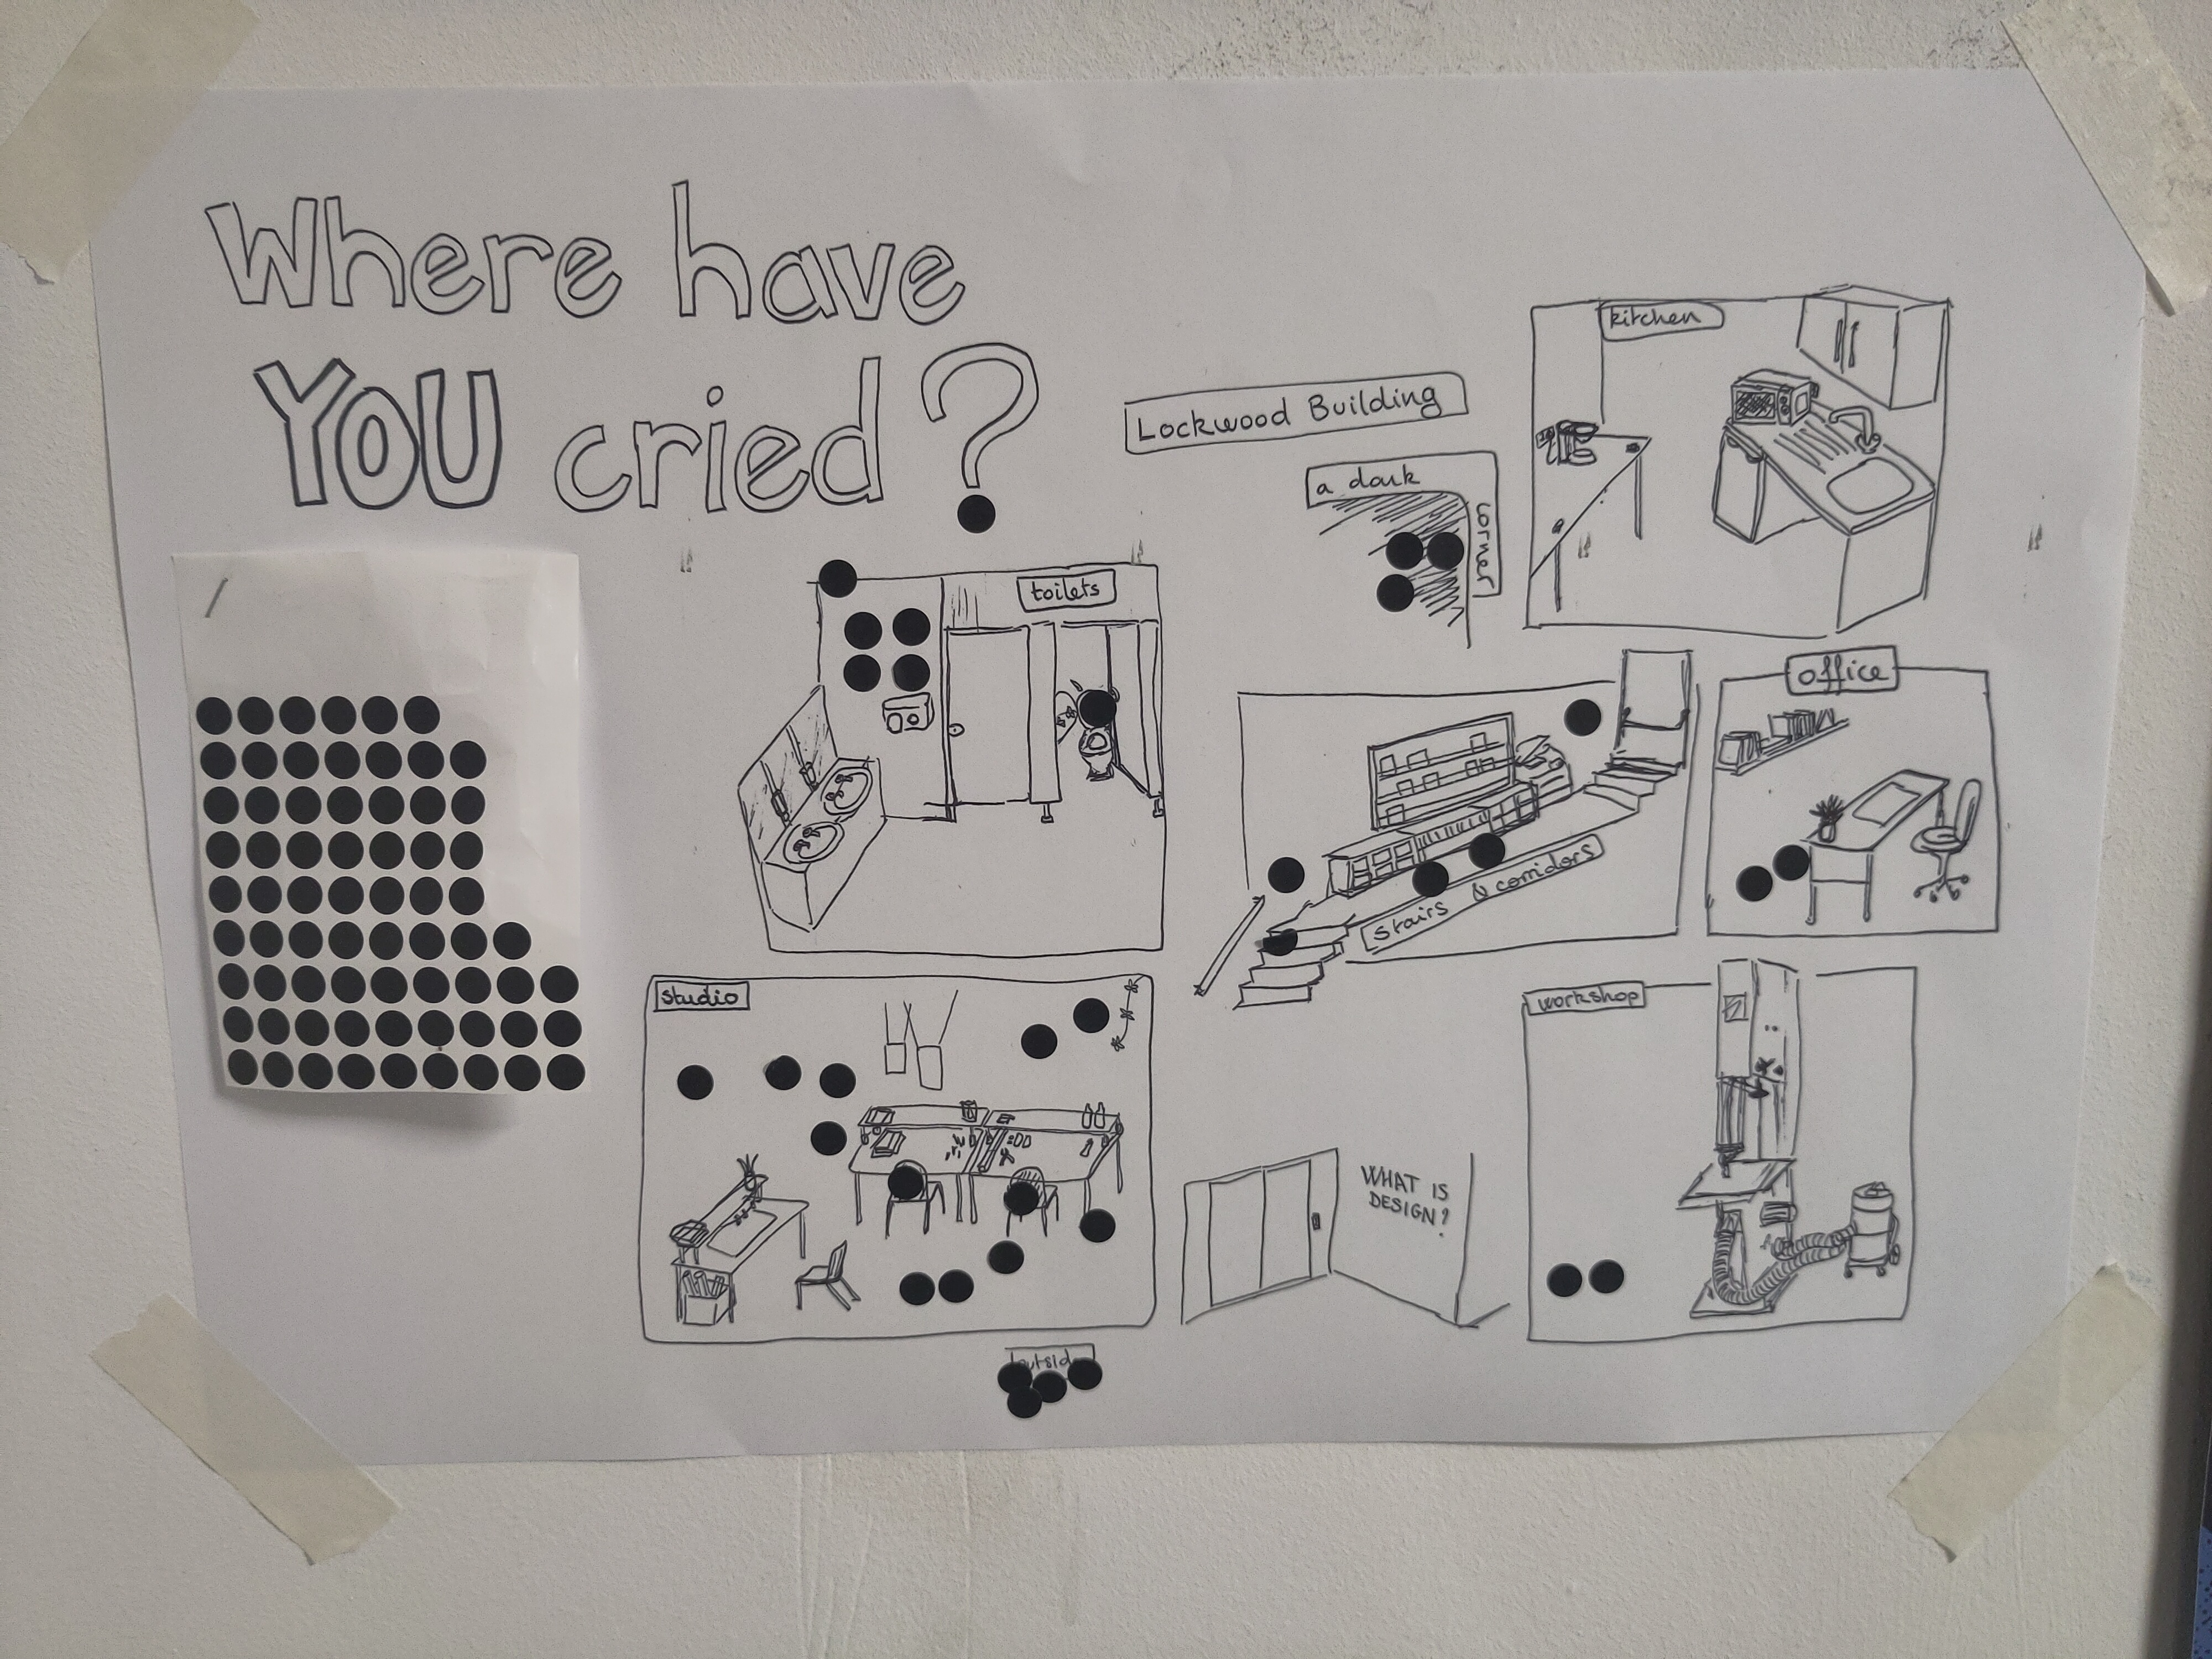 Where have
YOU cried?
Lockwood Building
a dark
corner
kitchen
toilets
office
stairs & corridors
studio
workshop
WHAT IS
DESIGN?
outside